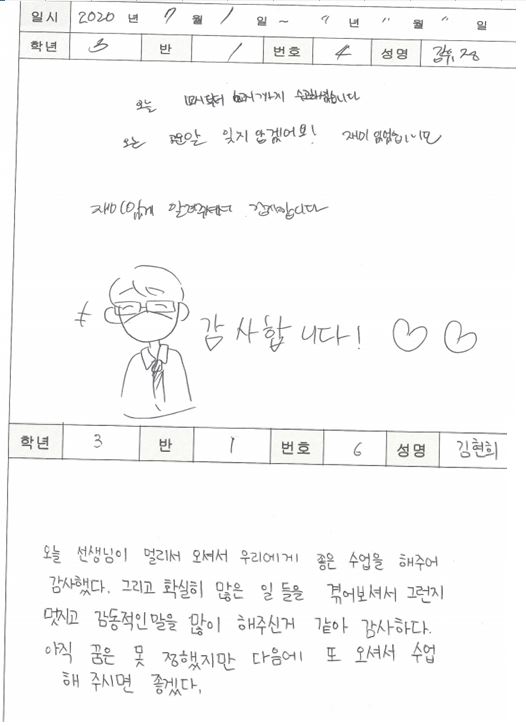 일시 2020 년 7 월 1 일 ~ 년 " 월 " 일
학년 3 반 1 번호 4 성명
오늘
오늘 잊지 않겠어요! 재미 있었습니다
재미있게 감사합니다
감사합니다!
학년 3 반 1 번호 6 성명 김현희
오늘 선생님이 멀리서 오셔서 우리에게 좋은 수업을 해주어
감사했다. 그리고 확실히 많은 일 들을 겪어보셔서 그런지
멋지고 감동적인말을 많이 해주신거 같아 감사하다.
아직 꿈은 못 정했지만 다음에 또 오셔서 수업
해 주시면 좋겠다.